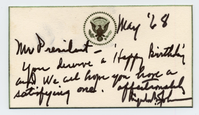 May '68
Mr President -
You deserve a 'Happy Birthday'
and We all hope you have a
satisfying one. affectionately